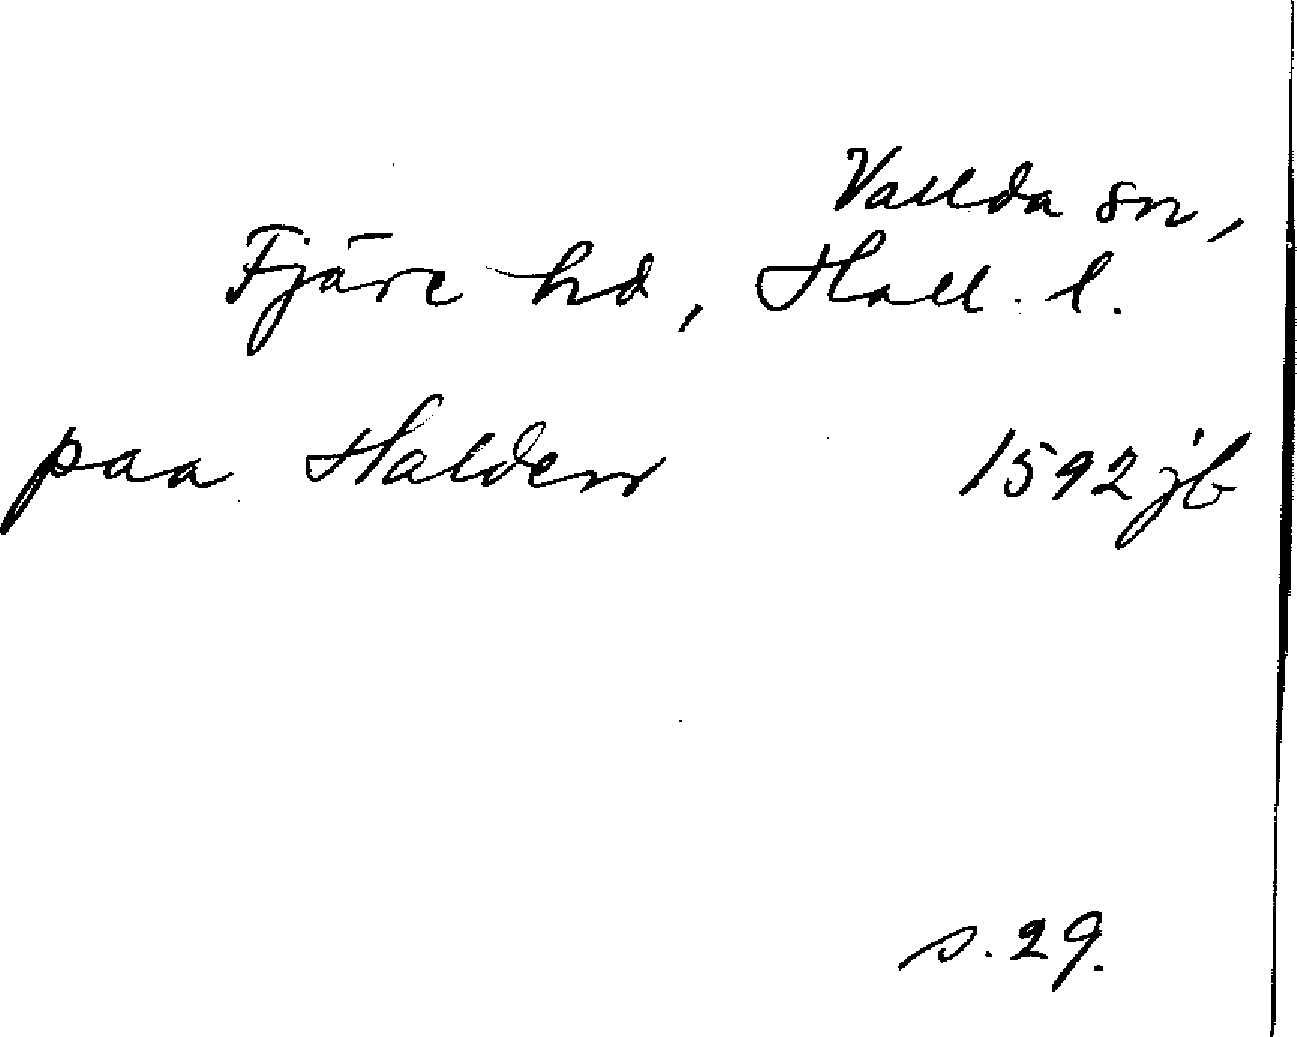 Vallda sn,
Fjäre hd, Hall. l.
paa Halden 1592 jb
s. 29.